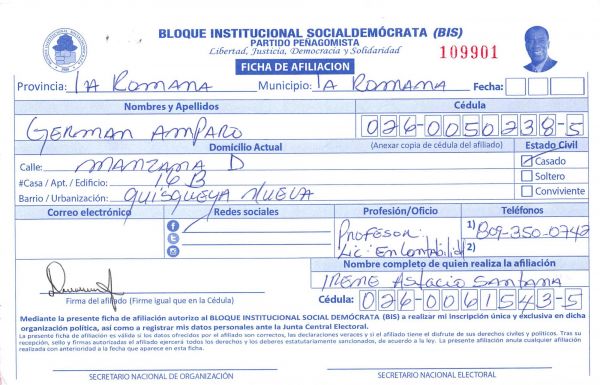 BLOQUE INSTITUCIONAL SOCIALDEMÓCRATA (BIS)
PARTIDO PEÑAGOMISTA
Libertad, Justicia, Democracia y Solidaridad
109901
FICHA DE AFILIACION
Provincia: LA ROMANA Municipio: LA ROMANA Fecha:
Nombres y Apellidos Cédula
GERMAN AMPARO 026-0050238-5
Domicilio Actual (Anexar copia de cédula del afiliado) Estado Civil
Calle: MANZANA D Casado
#Casa / Apt. / Edificio: 16 B Soltero
Barrio / Urbanización: QUISQUEYA NUEVA Conviviente
Correo electrónico Redes sociales Profesión/Oficio Teléfonos
PROFESOR. 1) 809-350-0742
Lic. En Contabilidad 2)
Nombre completo de quien realiza la afiliación
IRENE Astacio Santana
Firma del afiliado (Firme igual que en la Cédula) Cédula: 026-0061543-5
Mediante la presente ficha de afiliación autorizo al BLOQUE INSTITUCIONAL SOCIAL DEMÓCRATA (BIS) a realizar mi inscripción única y exclusiva en dicha
organización política, así como a registrar mis datos personales ante la Junta Central Electoral.
La presente ficha de afiliación es válida si los datos ofrecidos por el afiliado son correctos, las declaraciones veraces y si el afiliado tiene el disfrute de sus derechos civiles y políticos. Tras su
recepción, sello y firmas autorizadas el afiliado ejercerá todos los derechos y los deberes estatutariamente sancionados, de acuerdo a la ley. La presente afiliación anula cualquier afiliación
realizada con anterioridad a la fecha que aparece en esta ficha.
SECRETARIO NACIONAL DE ORGANIZACIÓN SECRETARIO NACIONAL ELECTORAL